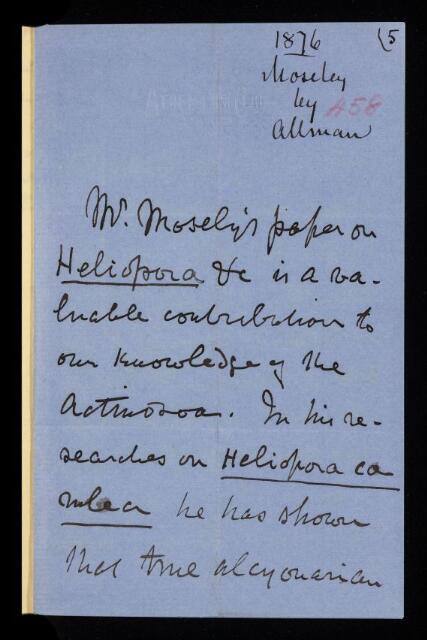 1876
(5
Moseley
by
A58
Allman
Mr. Mosely's paper on
Heliopora &c is a va-
luable contribution to
our knowledge of the
Actinozoa. In his re-
searches on Heliopora cœ
rulea he has shown
that true alcyonarian